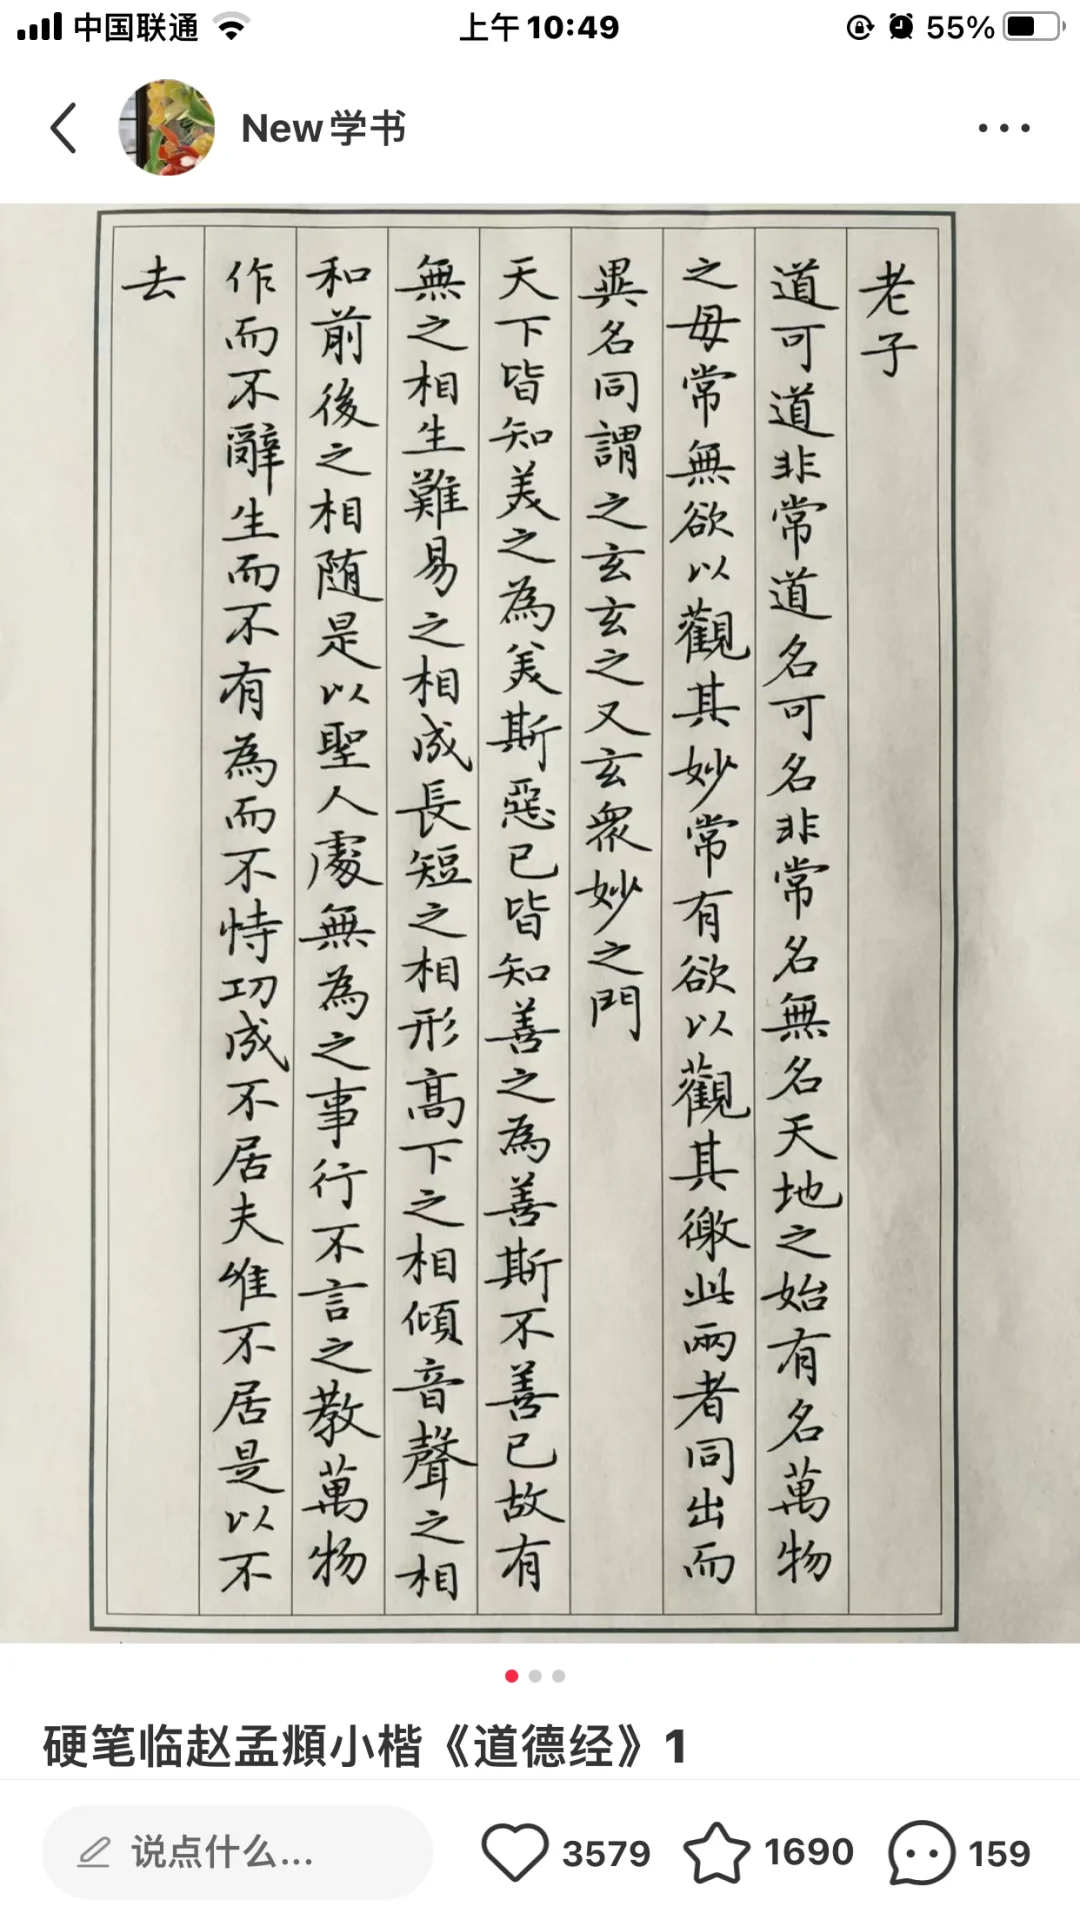 中国联通
上午10:49
55%
New学书
老子
道可道非常道名可名非常名無名天地之始有名萬物
之母常無欲以觀其妙常有欲以觀其徼此兩者同出而
異名同謂之玄玄之又玄衆妙之門
天下皆知美之為美斯惡已皆知善之為善斯不善已故有
無之相生難易之相成長短之相形高下之相傾音聲之相
和前後之相随是以聖人處無為之事行不言之教萬物
作而不辭生而不有為而不恃功成不居夫惟不居是以不
去
硬笔临赵孟頫小楷《道德经》1
说点什么...
3579
1690
159